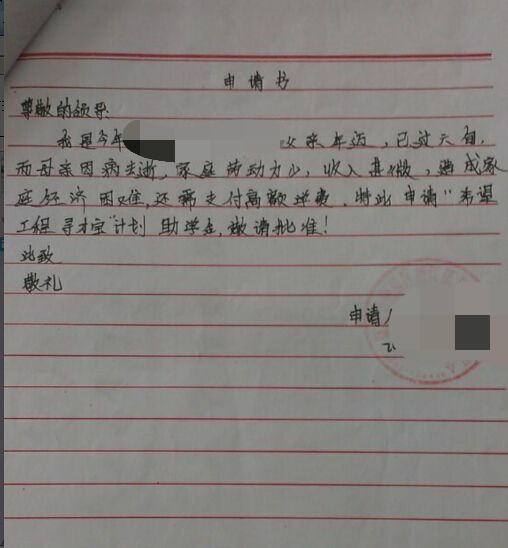 申请书
尊敬的领导
我是今年 父亲年迈,已过六旬,
而母亲因病去逝,家庭劳动力少,收入甚微,造成家
庭经济困难,还需支付高额学费,特此申请“希望
工程寻才宝”计划助学金,敬请批准!
此致
敬礼
申请人